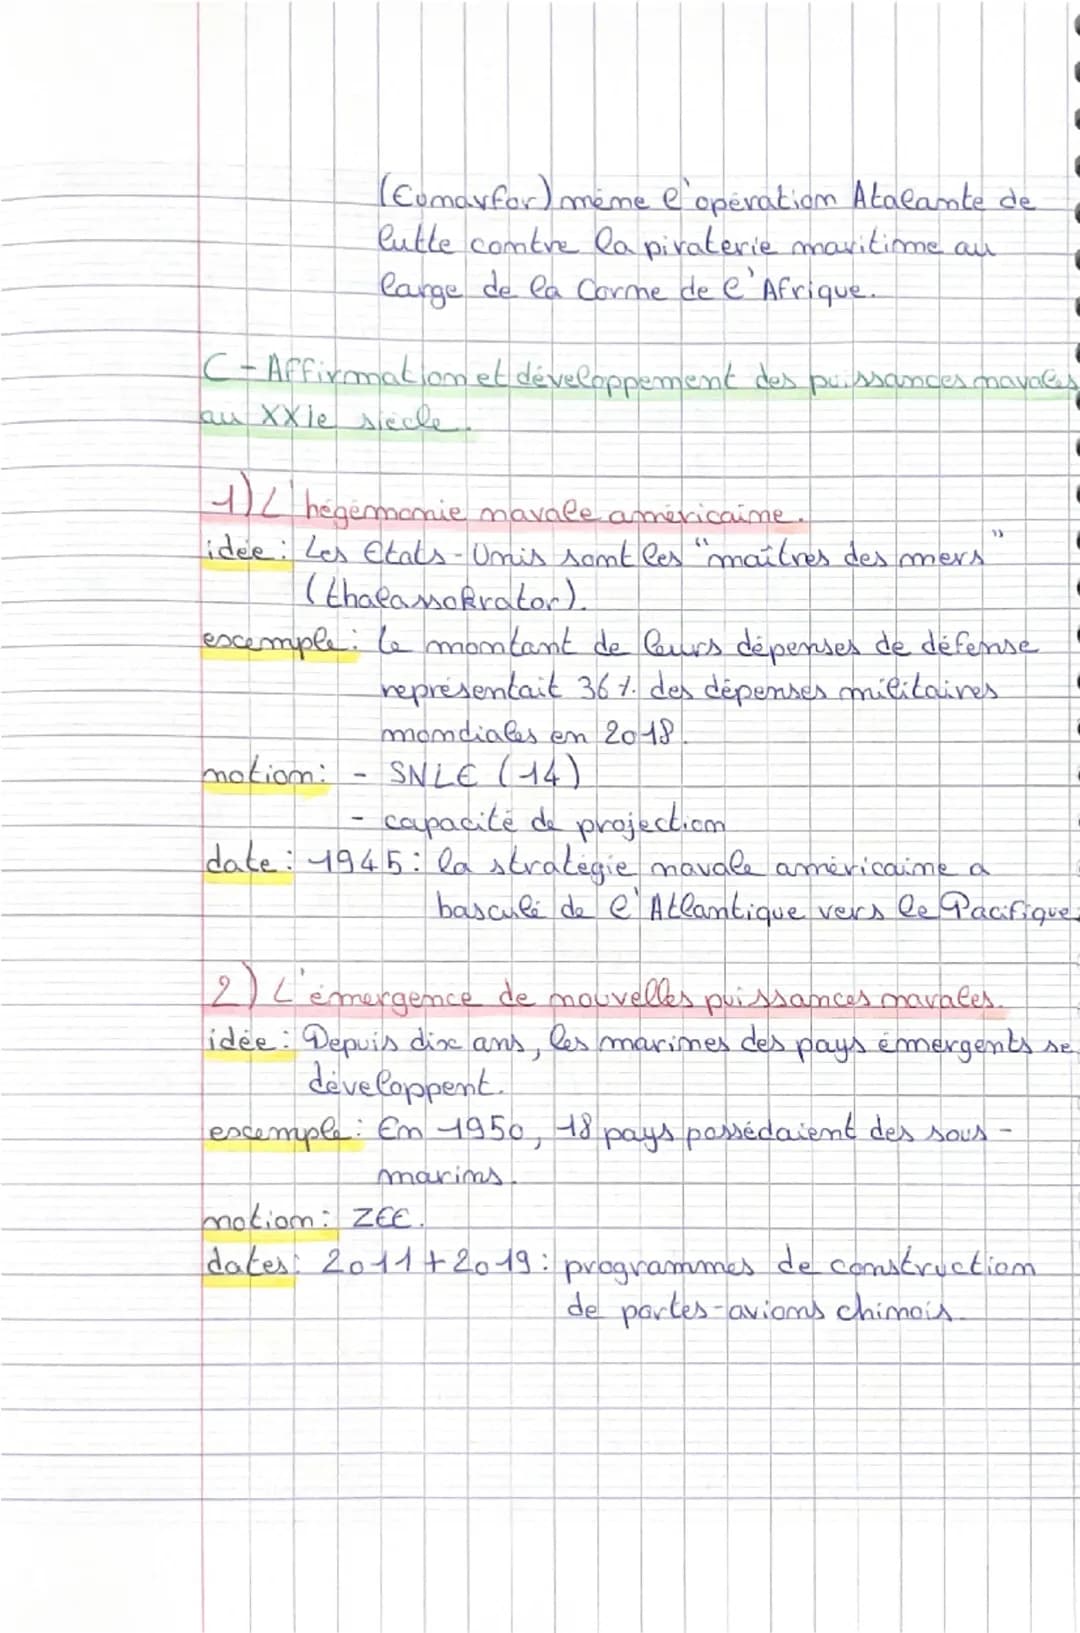 (Eumarfor) mène l'opération Atalante de
lutte contre la piraterie maritime au
large de la Corne de l'Afrique.
C - Affirmation et développement des puissances navales
au XXIe siècle.
1) L'hégémonie navale américaine.
idée : Les Etats-Unis sont les "maîtres des mers"
(thalassokrator).
exemple : le montant de leurs dépenses de défense
représentait 36 % des dépenses militaires
mondiales en 2018.
notion : - SNLE (14)
- capacité de projection
date : 1945 : la stratégie navale américaine a
basculé de l'Atlantique vers le Pacifique.
2) L'émergence de nouvelles puissances navales.
idée : Depuis dix ans, les marines des pays émergents se
développent.
exemple : En 1950, 18 pays possédaient des sous-
marins.
notion : ZEE.
dates : 2011 + 2019 : programmes de construction
de portes-avions chinois.